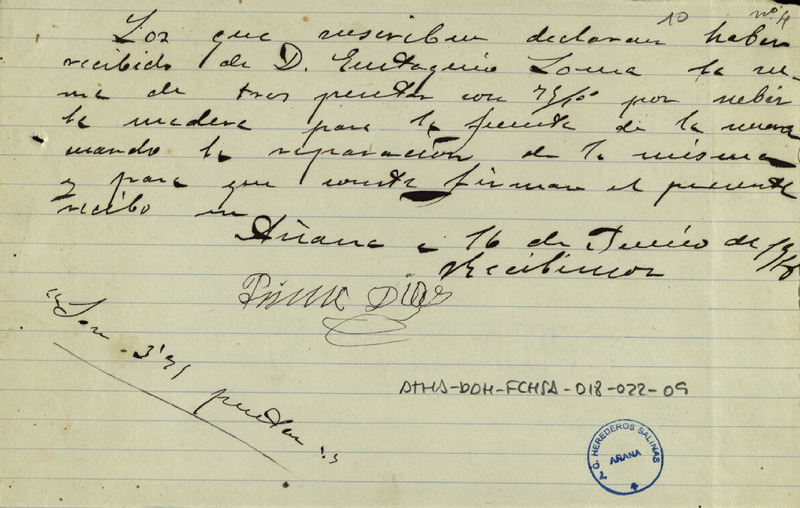 10 nº. 4
Los que suscriben declaran haber
recibido de D. Eustaquio Loma la su-
ma de tres pesetas con 75/00 por
la madera para la fuente de la
mando la reparación de la misma
y para que conste firman el presente
recibo en
Añana a 16 de Junio de
Recibimos
Díaz
"Son 3'75 pesetas"
ATHA-DOH-FCHSA-018-022-09
A. C. HEREDEROS SALINAS
AÑANA